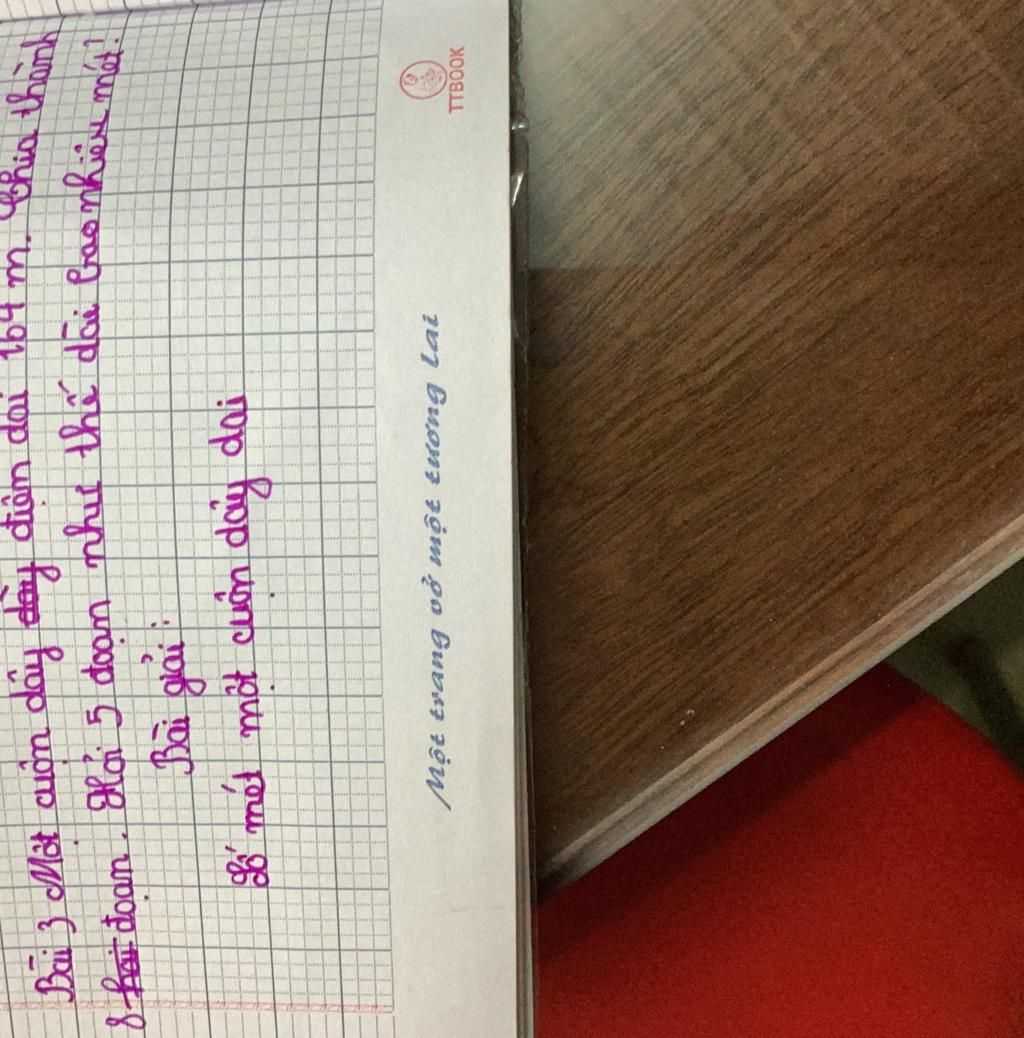 Bài 3 Một cuộn dây điện dài 164 m. Chia thành
8 đoạn. Hỏi 5 đoạn như thế dài bao nhiêu mét?
Bài giải:
Số mét một cuộn dây dài
Một trang vở một tương lai
TTBOOK